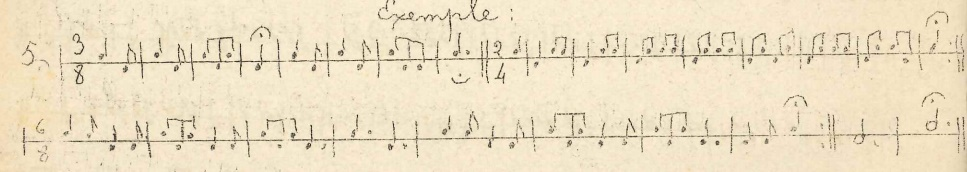 Exemple :
5. 3/8 2/4
6/8